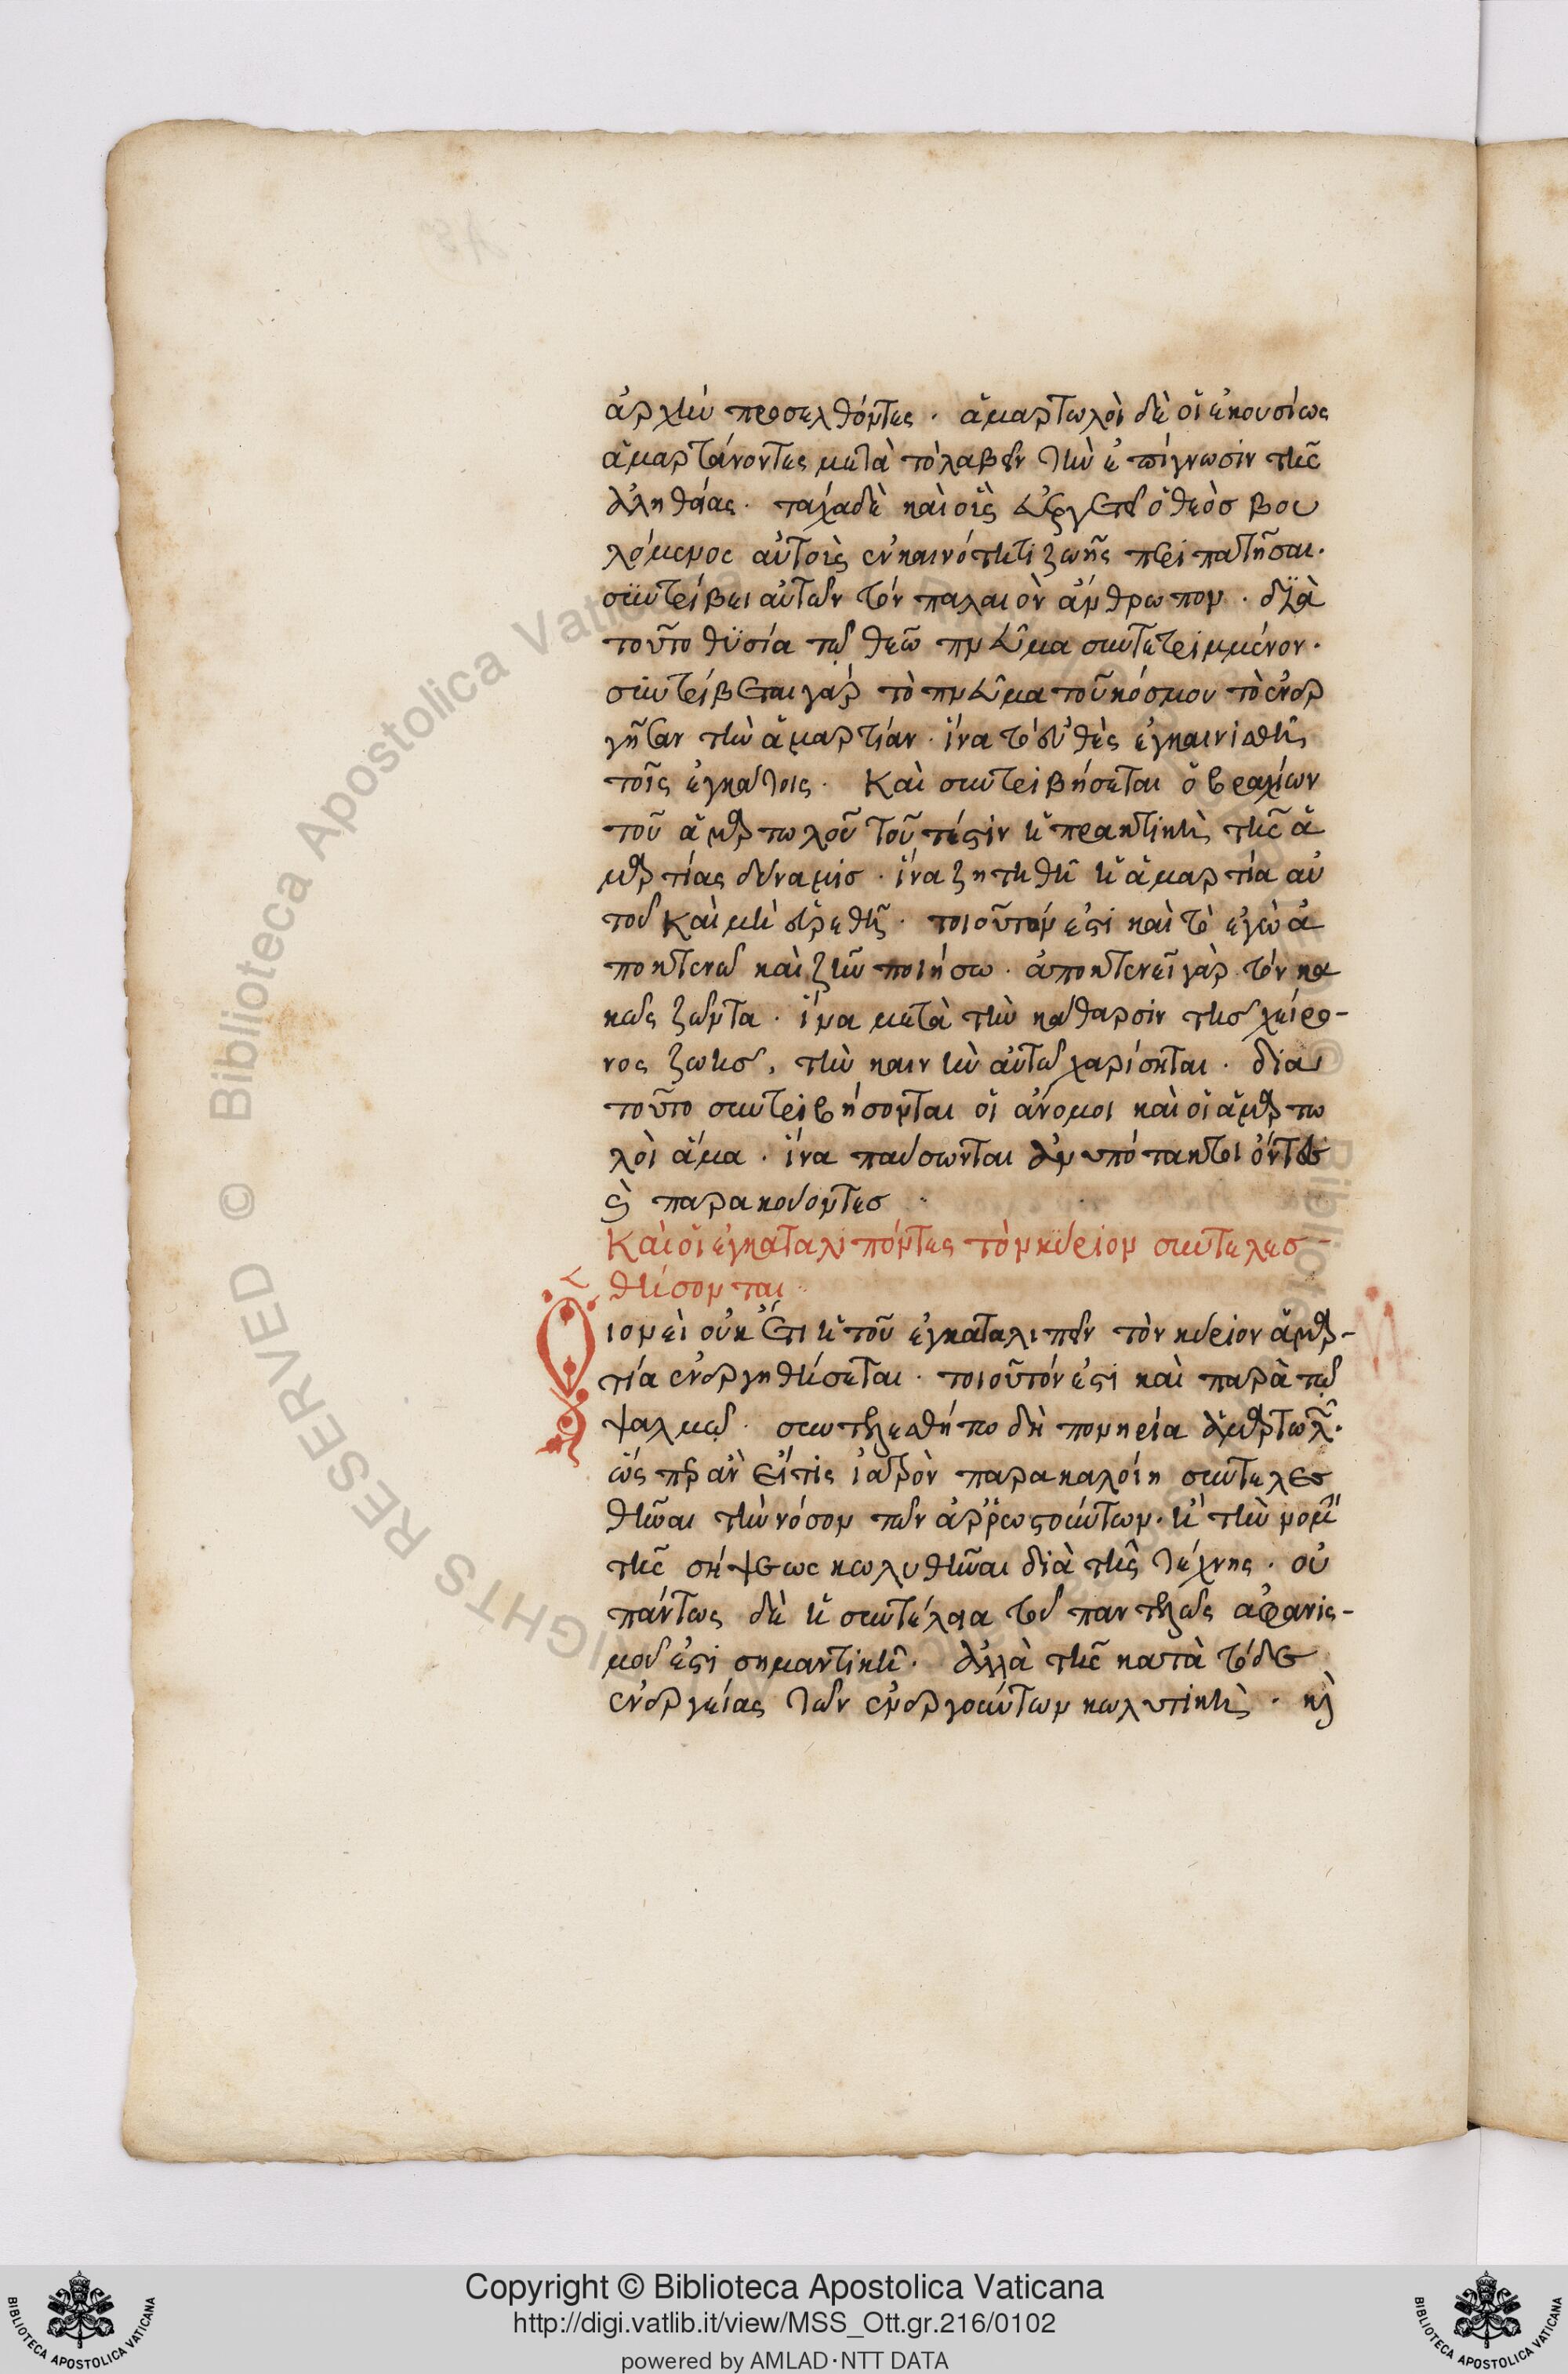 ἀρχὴν προσελθόντες · ἁμαρτωλοὶ δὲ οἱ ἑκουσίως
ἁμαρτάνοντες μετὰ τὸ λαβεῖν τὴν ἐπίγνωσιν τῆς
ἀληθείας · τάχα δὲ καὶ οἷς εὐεργετεῖ ὁ θεὸσ βου
λόμενος αὐτοὶς ἐν καινότητι ζωῆς περιπατῆσαι ·
συντρίβει αὐτῶν τὸν παλαιὸν ἄνθρωπον · διὰ
τοῦτο θυσία τῷ θεῷ πνεῦμα συντετριμμένον ·
συντρίβεται γὰρ τὸ πνεῦμα τοῦ κόσμου τὸ ἐνερ
γῆσαν τὴν ἁμαρτίαν · ἵνα τὸ εὐθὲς ἐγκαινισθῇ
τοῖς ἐγκάτοις · Καὶ συντριβήσεται ὁ βραχίων
τοῦ ἁμαρτωλοῦ τουτέστιν ἡ πρακτικὴ τῆς ἁ
μαρτίας δύναμισ · ἵνα ζητηθῇ ἡ ἁμαρτία αὐ
τοῦ καὶ μὴ εὑρεθῇ · τοιοῦτόν ἐστι καὶ τὸ ἐγὼ ἀ
ποκτενῶ καὶ ζῆν ποιήσω · ἀποκτενεῖ γὰρ τὸν κα
κῶς ζῶντα · ἵνα μετὰ τὴν κάθαρσιν τῆσ χείρο-
νος ζωῆσ, τὴν καινὴν αὐτῶ χαρίσηται · δία
τοῦτο συντριβήσονται οἱ ἄνομοι καὶ οἱ ἁμαρτω
λοὶ ἅμα · ἵνα παύσωνται ἀνυπότακτοι ὄντες
καὶ παρακούοντεσ
Καὶ οἱ ἐγκαταλιπόντες τὸν κύριον συντελεσ-
θήσονται
Οἱονεὶ οὐκέτι ἡ τοῦ ἐγκαταλιπεῖν τὸν κύριον ἁμαρ-
τία ἐνεργηθήσεται · τοιοῦτόν ἐστι καὶ παρὰ τῷ
ψαλμῷ · συντελεσθήτω δὴ πονηρία ἁμαρτωλῶν ·
ὥσπερ ἂν εἴ τις ἰατρὸν παρακαλοίη συντελεσ
θῆναι τὴν νόσον τῶν ἀρρωστούντων · ἢ τὴν νομὴν
τῆς σήψεως κωλυθῆναι διὰ τῆς τέχνης · οὐ
πάντως δὲ ἡ συντέλεια τοῦ παντελῶς ἀφανισ-
μοῦ ἐστι σημαντικὴ · ἀλλὰ τῆς κατὰ τόδε
ἐνεργείας τῶν ἐνεργούντων κωλυτικὴ · καὶ
Copyright © Biblioteca Apostolica Vaticana
http://digi.vatlib.it/view/MSS_Ott.gr.216/0102
powered by AMLAD·NTT DATA